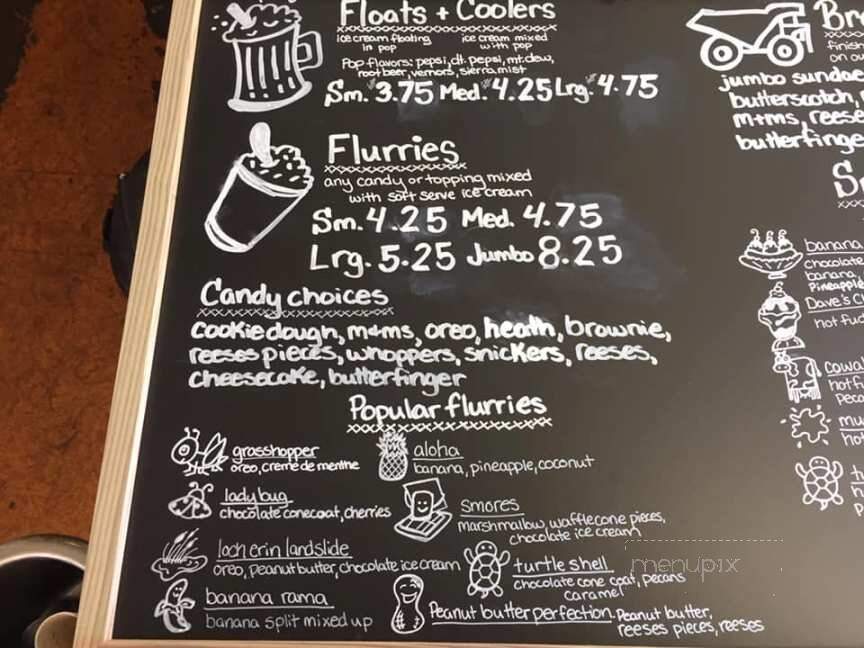 Floats + Coolers
ice cream floating
in pop
ice cream mixed
with pop
Pop flavors: pepsi, dt. pepsi, mt. dew,
root beer, vernors, sierra mist
Sm. 3.75 Med. 4.25 Lrg. 4.75
Flurries
any candy or topping mixed
with soft serve ice cream
Sm. 4.25 Med. 4.75
Lrg. 5.25 Jumbo 8.25
Candy choices
cookie dough, m+ms, oreo, heath, brownie,
reeses pieces, whoppers, snickers, reeses,
cheesecake, butterfinger
Popular flurries
grasshopper
oreo, creme de menthe
lady bug
chocolate conecoat, cherries
loch erin landslide
oreo, peanut butter, chocolate ice cream
banana rama
banana split mixed up
aloha
banana, pineapple, coconut
Smores
marshmallow, waffle cone pieces,
chocolate ice cream
turtle shell
chocolate cone coat, pecans
caramel
Peanut butter perfection Peanut butter,
reeses pieces, reeses
finis
on ou
jumbo sundae
butterscotch,
m+ms, reese
butterfinge
banana
chocolate
banana
Pineapple
Dave's
hot fud
cowa
hot f
peca
mu
ho
menupix